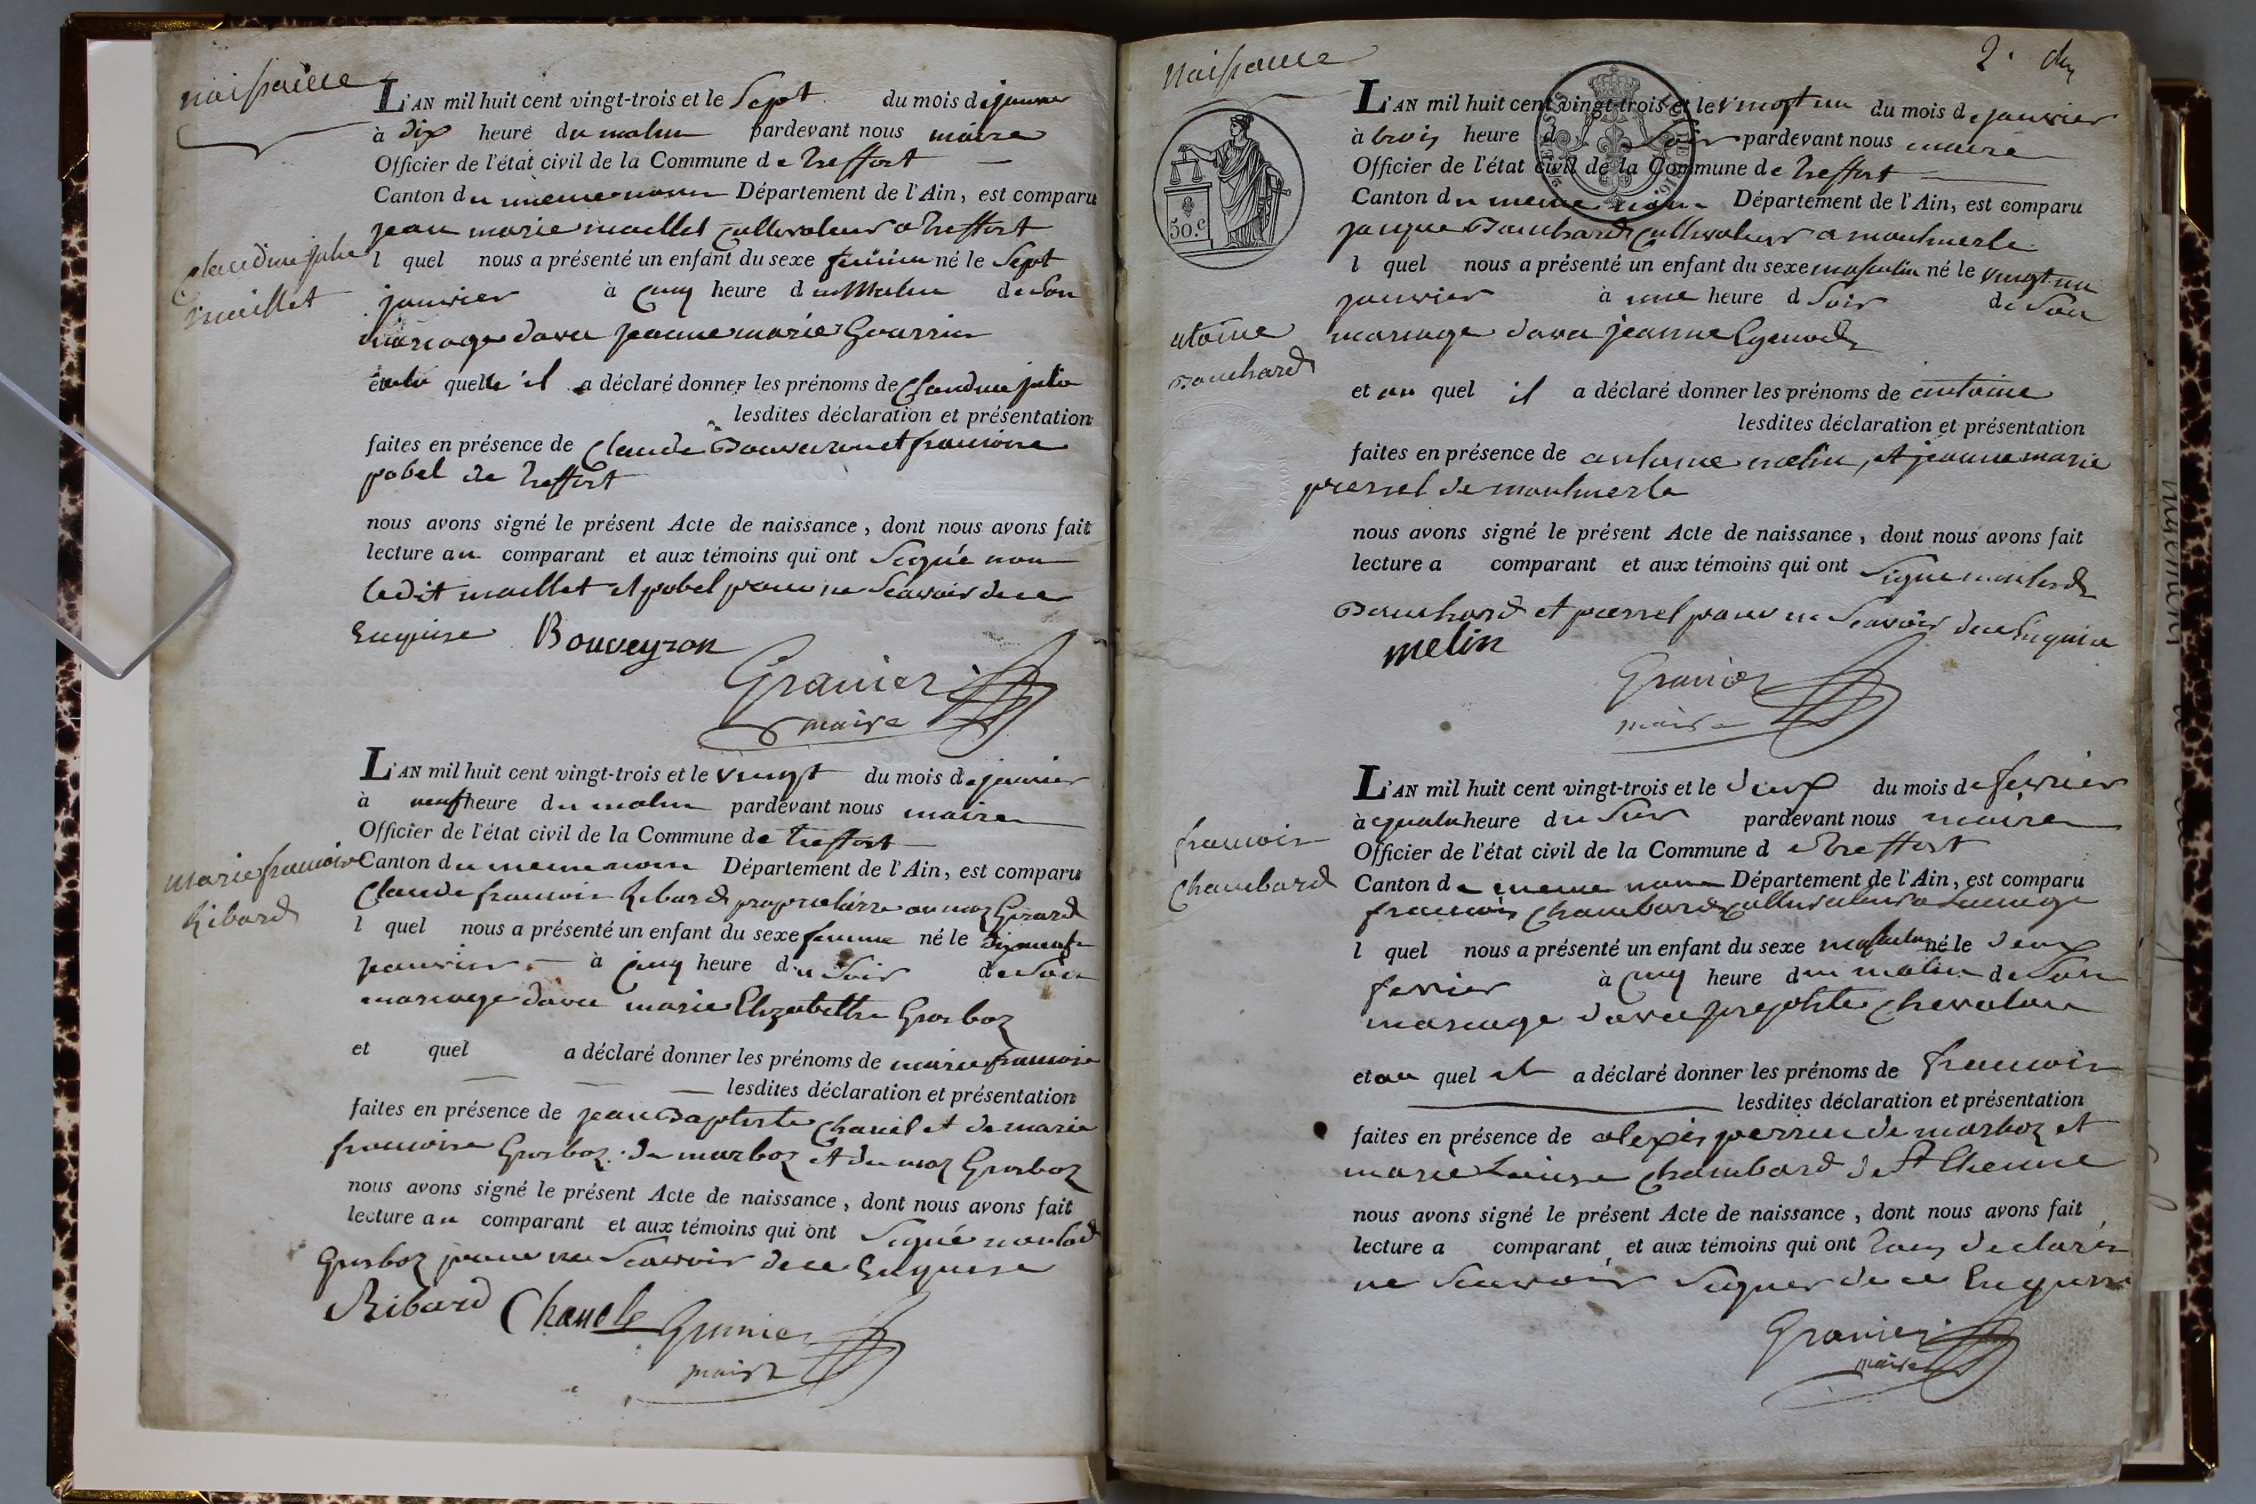 naissance
L'AN mil huit cent vingt-trois et le Sept du mois de janvier
à dix heure du matin pardevant nous maire
Officier de l'état civil de la Commune de treffort
Canton du meme nom Département de l'Ain, est comparu
jean marie maillet Cultivateur a treffort
l quel nous a présenté un enfant du sexe feminin né le Sept
janvier à Cinq heure du Matin de Son
mariage davec jeanne marie
Claudine julie
maillet
et a la quelle il a déclaré donner les prénoms de Claudine julie
lesdites déclaration et présentation
faites en présence de Claude Bouveron et francoise
pobel de treffort
nous avons signé le présent Acte de naissance, dont nous avons fait
lecture au comparant et aux témoins qui ont Signé non
ledit maillet et pobel pour ne Scavoir de ce
Enquise Bouveyron
Granier
maire
L'AN mil huit cent vingt-trois et le vingt du mois de janvier
à neuf heure du matin pardevant nous maire
Officier de l'état civil de la Commune de treffort
Canton du meme nom Département de l'Ain, est comparu
Claude francois Ribard proprietaire au maz Girard
l quel nous a présenté un enfant du sexe femme né le dix neuf
janvier à Cinq heure du Soir de Son
mariage davec marie Elizabeth Grosboz
marie francoise
Ribard
et quel a déclaré donner les prénoms de marie francoise
lesdites déclaration et présentation
faites en présence de jean Baptiste Chanel et de marie
francoise Grosboz de marboz et du maz Grosboz
nous avons signé le présent Acte de naissance, dont nous avons fait
lecture au comparant et aux témoins qui ont Signé non lad
Grosboz pour ne Scavoir de ce Enquise
Ribard Chanele Granier
maire
2.
naissance
L'AN mil huit cent vingt-trois et le vingt un du mois de janvier
à trois heure d Soir pardevant nous maire
Officier de l'état civil de la Commune de treffort
Canton du meme nom Département de l'Ain, est comparu
jacque Bouchard Cultivateur a montmerle
l quel nous a présenté un enfant du sexe masculin né le vingt un
janvier à une heure d Soir de Son
mariage davec jeanne
30.c
atoine
Bouchard
et au quel il a déclaré donner les prénoms de antoine
lesdites déclaration et présentation
faites en présence de antoine melin, et jeanne marie
perret de montmerle
nous avons signé le présent Acte de naissance, dont nous avons fait
lecture a comparant et aux témoins qui ont Signé non lesd
Bouchard et perret pour ne Scavoir de ce Enquis
melin
Granier
maire
L'AN mil huit cent vingt-trois et le deux du mois de fevrier
à quatre heure du Soir pardevant nous maire
Officier de l'état civil de la Commune d e treffort
Canton de meme nom Département de l'Ain, est comparu
francois Chambard Cultivateur a
l quel nous a présenté un enfant du sexe masculin né le deux
fevrier à Cinq heure du matin de Son
mariage davec
francois
Chambard
et au quel il a déclaré donner les prénoms de francois
lesdites déclaration et présentation
faites en présence de alexis perrin de marboz et
marie Louise Chambard de St Etienne
nous avons signé le présent Acte de naissance, dont nous avons fait
lecture a comparant et aux témoins qui ont tous declarés
ne Scavoir Signer de ce Enquis
Granier
maire